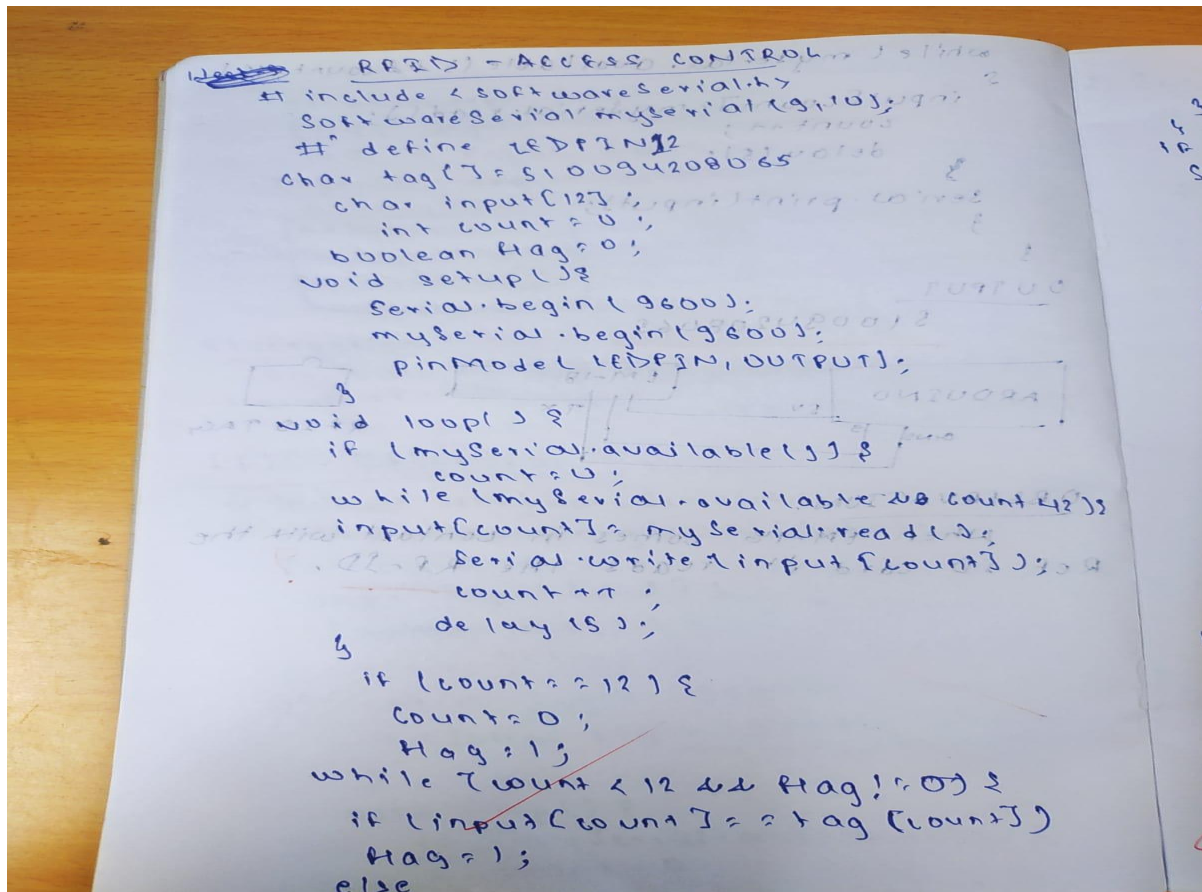 RFID - ACCESS CONTROL
# include <softwareSerial.h>
SoftwareSerial myserial(9,10);
# define LEDPIN 12
char tag[] = 510094208065
char input[12];
int count = 0;
boolean flag = 0;
void setup(){
Serial.begin(9600);
mySerial.begin(9600);
pinMode(LEDPIN, OUTPUT);
}
void loop() {
if (mySerial.available()) {
count = 0;
while (mySerial.available && count <12){
input[count] = mySerial.read();
Serial.write(input[count]);
count ++;
delay(5);
}
if (count == 12) {
count = 0;
flag = 1;
while (count < 12 && flag != 0) {
if (input[count] == tag[count])
flag = 1;
else